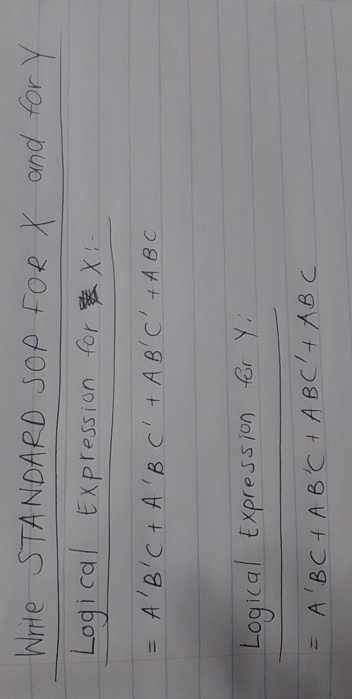 Write STANDARD SOP FOR X and for Y
Logical Expression for X:-
= A'B'C + A'B C' + AB'C' + ABC
Logical Expression for Y:
= A'BC + AB'C + ABC' + ABC